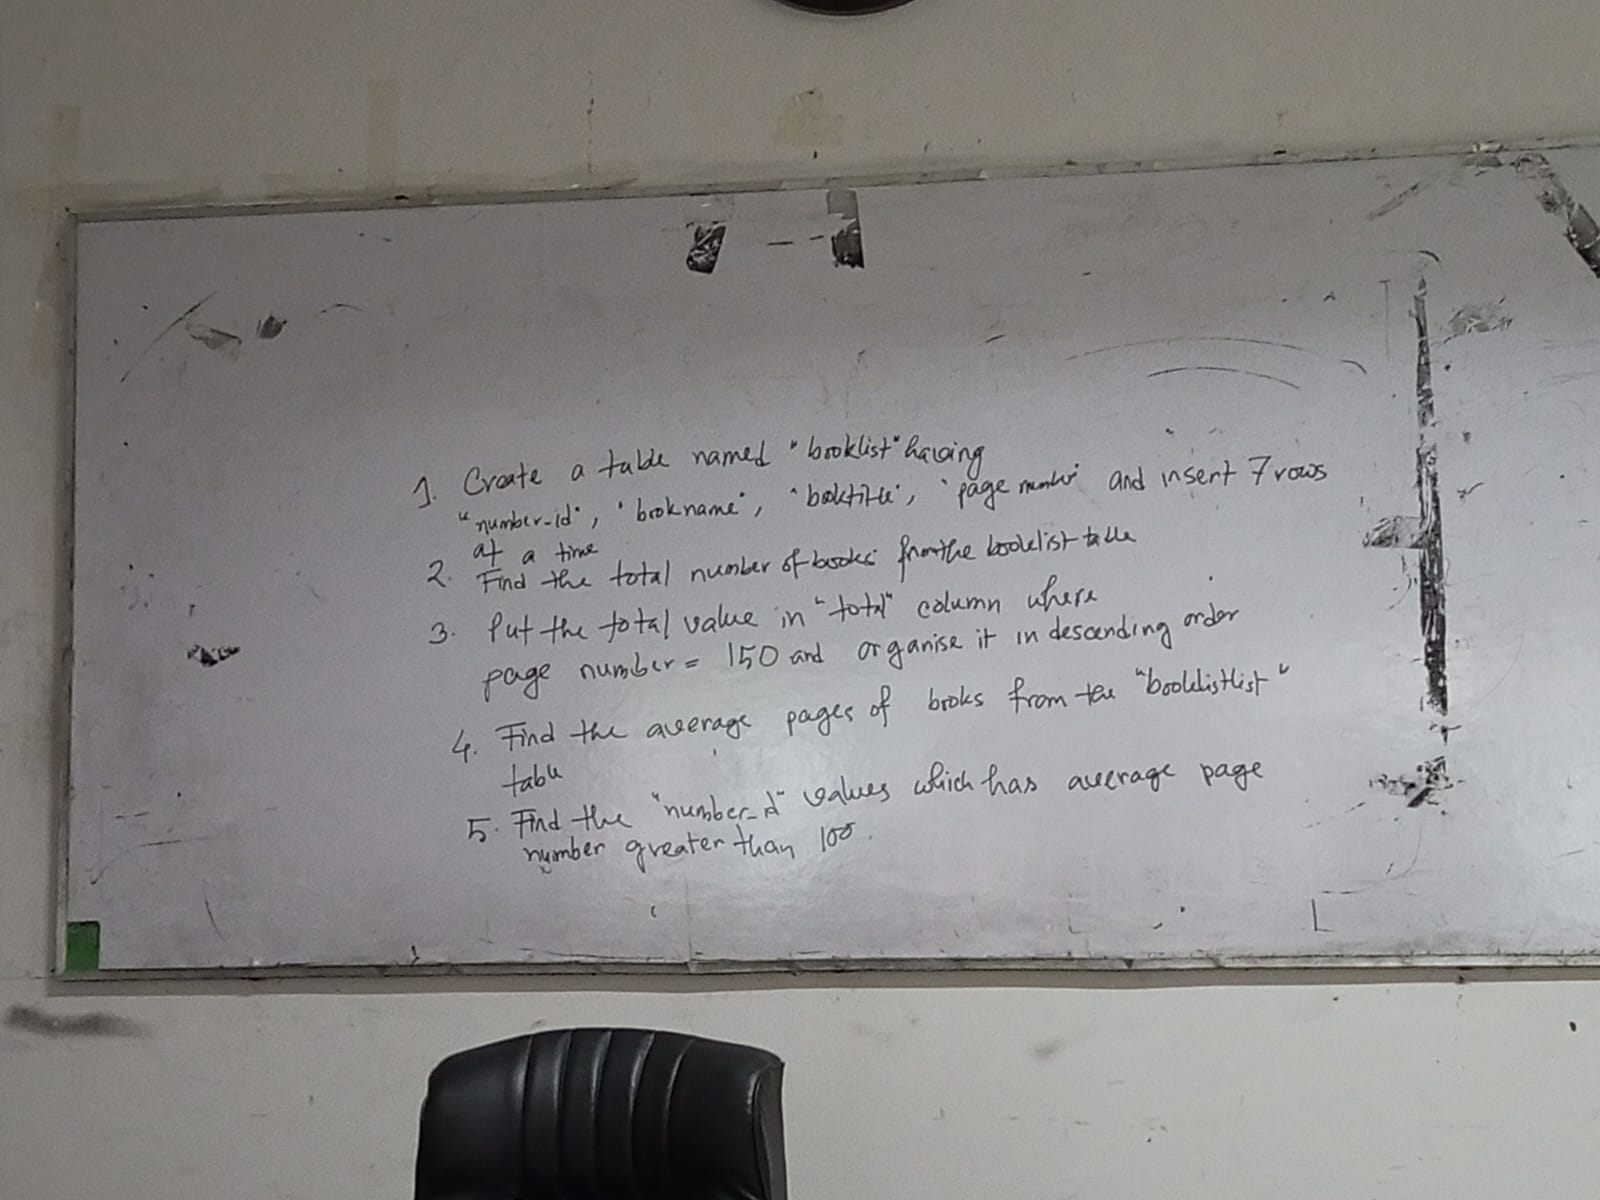 1. Create a table named "booklist" having
"number-id", "bookname", "booktitle", "page number" and insert 7 rows
at a time
2. Find the total number of books from the booklist table
3. Put the total value in "total" column where
page number = 150 and organise it in descending order
4. Find the average pages of books from the "booklistlist"
table
5. Find the "number_id" values which has average page
number greater than 100.